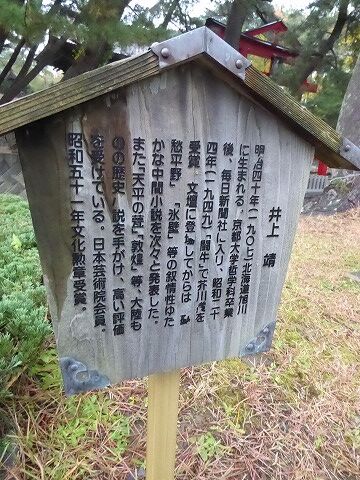 井上 靖
明治四十年(一九〇七)北海道旭川
に生まれる。京都大学哲学科卒業
後、毎日新聞社に入り、昭和二十
四年(一九四九)「闘牛」で芥川賞を
受賞。文壇に登場してからは
愁平野」「氷壁」等の叙情性ゆた
かな中間小説を次々と発表した。
また「天平の甍」「敦煌」等、大陸も
のの歴史小説を手がけ、高い評価
を受けている。日本芸術院会員。
昭和五十一年文化勲章受賞。